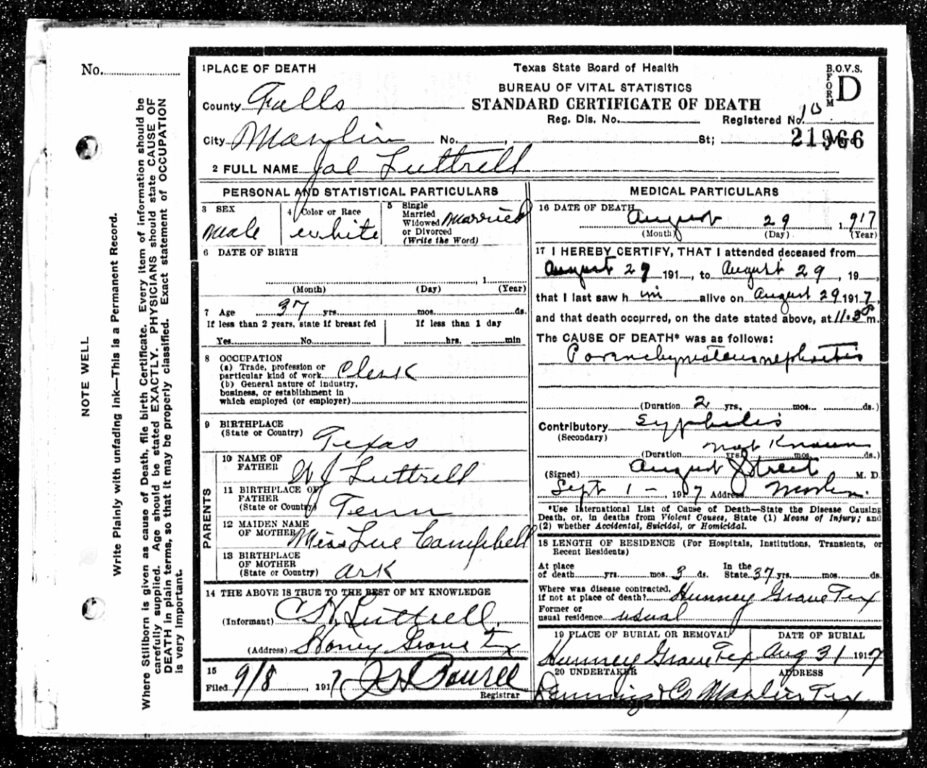 No.
NOTE WELL
Write Plainly with unfading Ink—This is a Permanent Record.
Where Stillborn is given as cause of Death, file birth Certificate. Every item of information should be
carefully supplied. Age should be stated EXACTLY. PHYSICIANS should state CAUSE OF
DEATH in plain terms, so that it may be properly classified. Exact statement of OCCUPATION
is very important.
Texas State Board of Health
BUREAU OF VITAL STATISTICS
STANDARD CERTIFICATE OF DEATH
B.O.V.S.
FORM D
Reg. Dis. No. Registered No. 10
21966
1 PLACE OF DEATH
County Falls
City Marlin No. St;
2 FULL NAME Joe Luttrell
PERSONAL AND STATISTICAL PARTICULARS
3 SEX
Male
4 Color or Race
white
5 Single
Married
Widowed
or Divorced
(Write the Word)
Married
6 DATE OF BIRTH
, 1
(Month) (Day) (Year)
7 Age 37 yrs. mos. ds.
If less than 2 years, state if breast fed
Yes No
If less than 1 day
hrs. min
8 OCCUPATION
(a) Trade, profession or
particular kind of work Clerk
(b) General nature of industry,
business, or establishment in
which employed (or employer)
9 BIRTHPLACE
(State or Country) Texas
PARENTS
10 NAME OF
FATHER J Luttrell
11 BIRTHPLACE OF
FATHER
(State or Country) Tenn
12 MAIDEN NAME
OF MOTHER Miss Lue Campbell
13 BIRTHPLACE
OF MOTHER
(State or Country) Ark
14 THE ABOVE IS TRUE TO THE BEST OF MY KNOWLEDGE
(Informant) Luttrell
(Address) Honey Grove Tx
15
Filed 9/8, 1917
Registrar
MEDICAL PARTICULARS
16 DATE OF DEATH
August 29 1917
(Month) (Day) (Year)
17 I HEREBY CERTIFY, THAT I attended deceased from
August 29 191, to August 29, 19
that I last saw him alive on August 29 1917,
and that death occurred, on the date stated above, at m.
The CAUSE OF DEATH* was as follows:
Parenchymatous nephritis
(Duration 2 yrs. mos. ds.)
Contributory Syphilis
(Secondary)
Not Known
(Duration yrs. mos. ds.)
(Signed) August J Streit M. D.
Sept 1 - 1917 Address Marlin.
*Use International List of Cause of Death—State the Disease Causing
Death, or, in deaths from Violent Causes, State (1) Means of Injury; and
(2) whether Accidental, Suicidal, or Homicidal.
18 LENGTH OF RESIDENCE (For Hospitals, Institutions, Transients, or
Recent Residents)
At place
of death yrs. mos. 3 ds.
In the
State 37 yrs. mos. ds.
Where was disease contracted,
if not at place of death? Hunney Grove Tex
Former or
usual residence usual
19 PLACE OF BURIAL OR REMOVAL
Hunney Grove Tex
DATE OF BURIAL
Aug 31 1917
20 UNDERTAKER
& Co
ADDRESS
Marlin Tex